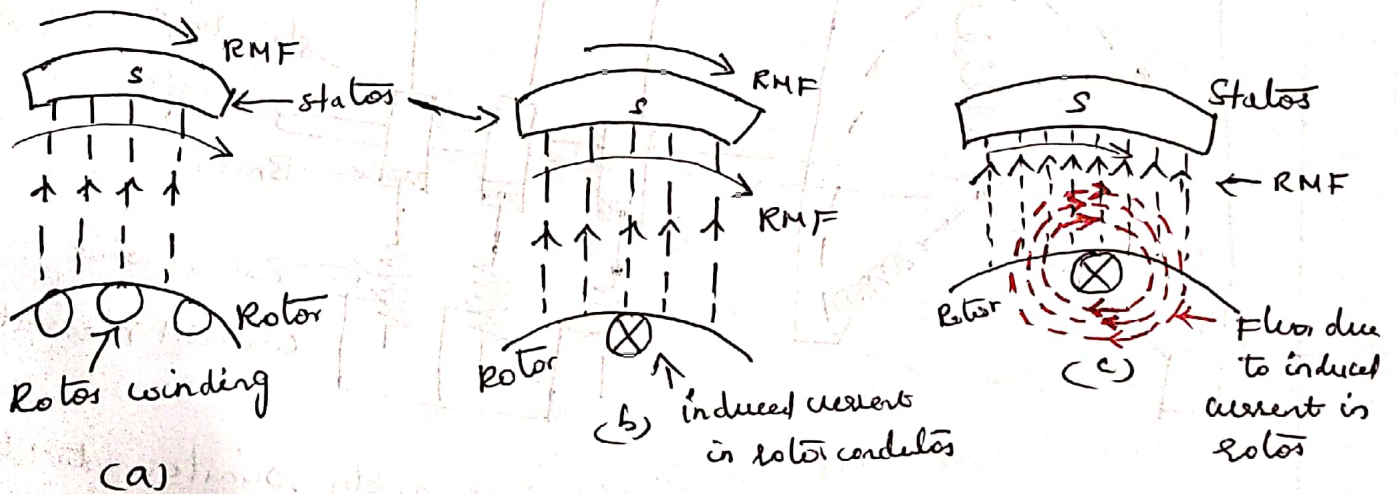 RMF
S
Stator
Rotor
Rotor winding
(a)
RMF
S
RMF
Rotor
(b)
induced current
in rotor conductor
S
Stator
RMF
Rotor
(c)
Flux due
to induced
current in
rotor